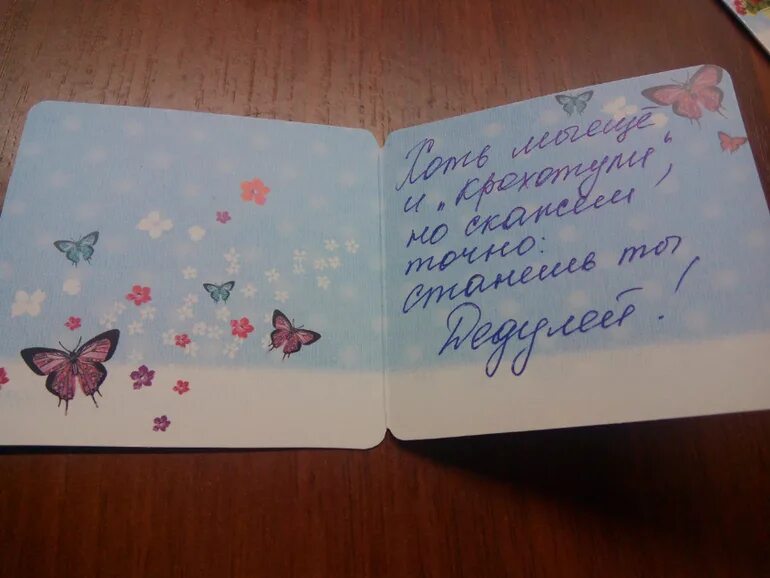 Хоть мы ещё
и "крохотули",
но скажем
точно:
станешь ты
Дедулей!